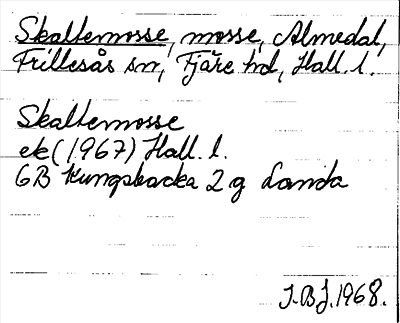 Skaltemosse, mosse, Almedal,
Frillesås sn, Fjäre hd, Hall. l.
Skaltemosse
ek (1967) Hall. l.
6B Kungsbacka 2 g Landa
J.BJ.1968.